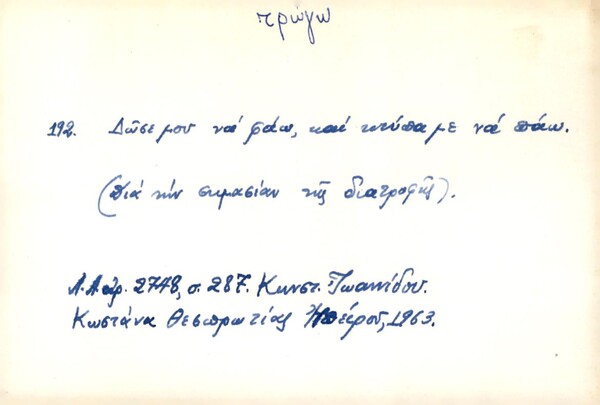 τρώγω
192. Δῶσε μου νά φάω, καί κτύπα με νά πάω.
(Διά τήν σημασίαν τῆς διατροφῆς).
Λ.Α. ἀρ. 2748, σ. 287. Κωνστ. Ἰωαννίδου.
Κωστάνα Θεσπρωτίας Ἠπείρου, 1963.